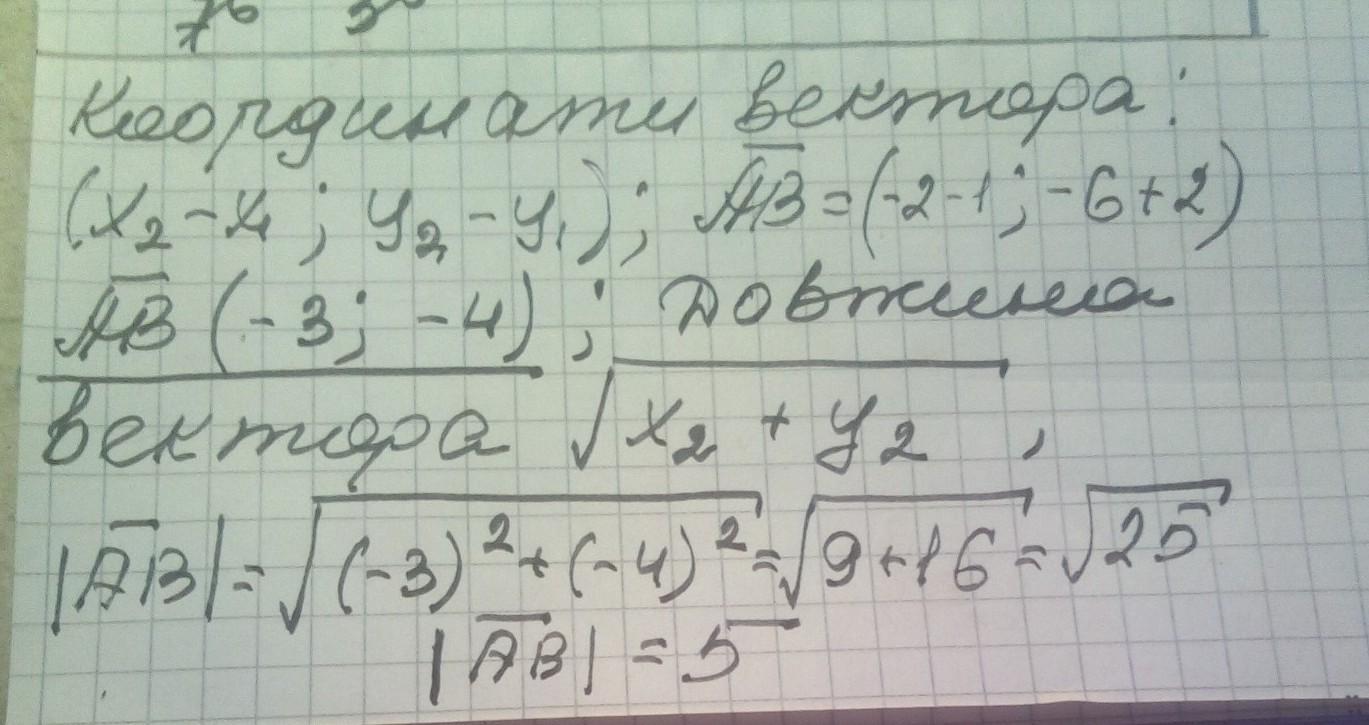 Координати вектора:
(x₂ - x₁; y₂ - y₁); A̅B̅ = (-2-1; -6+2)
A̅B̅ (-3; -4); Довжина
вектора √(x₂ + y₂),
|A̅B̅| = √((-3)² + (-4)²) = √(9+16) = √25
|A̅B̅| = 5